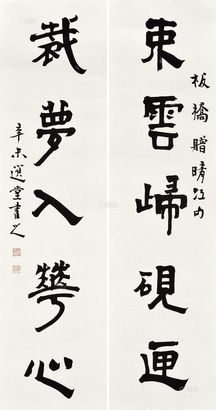 板橋贈晴江句
束雲歸硯匣
裁夢入華心
辛未選堂書之